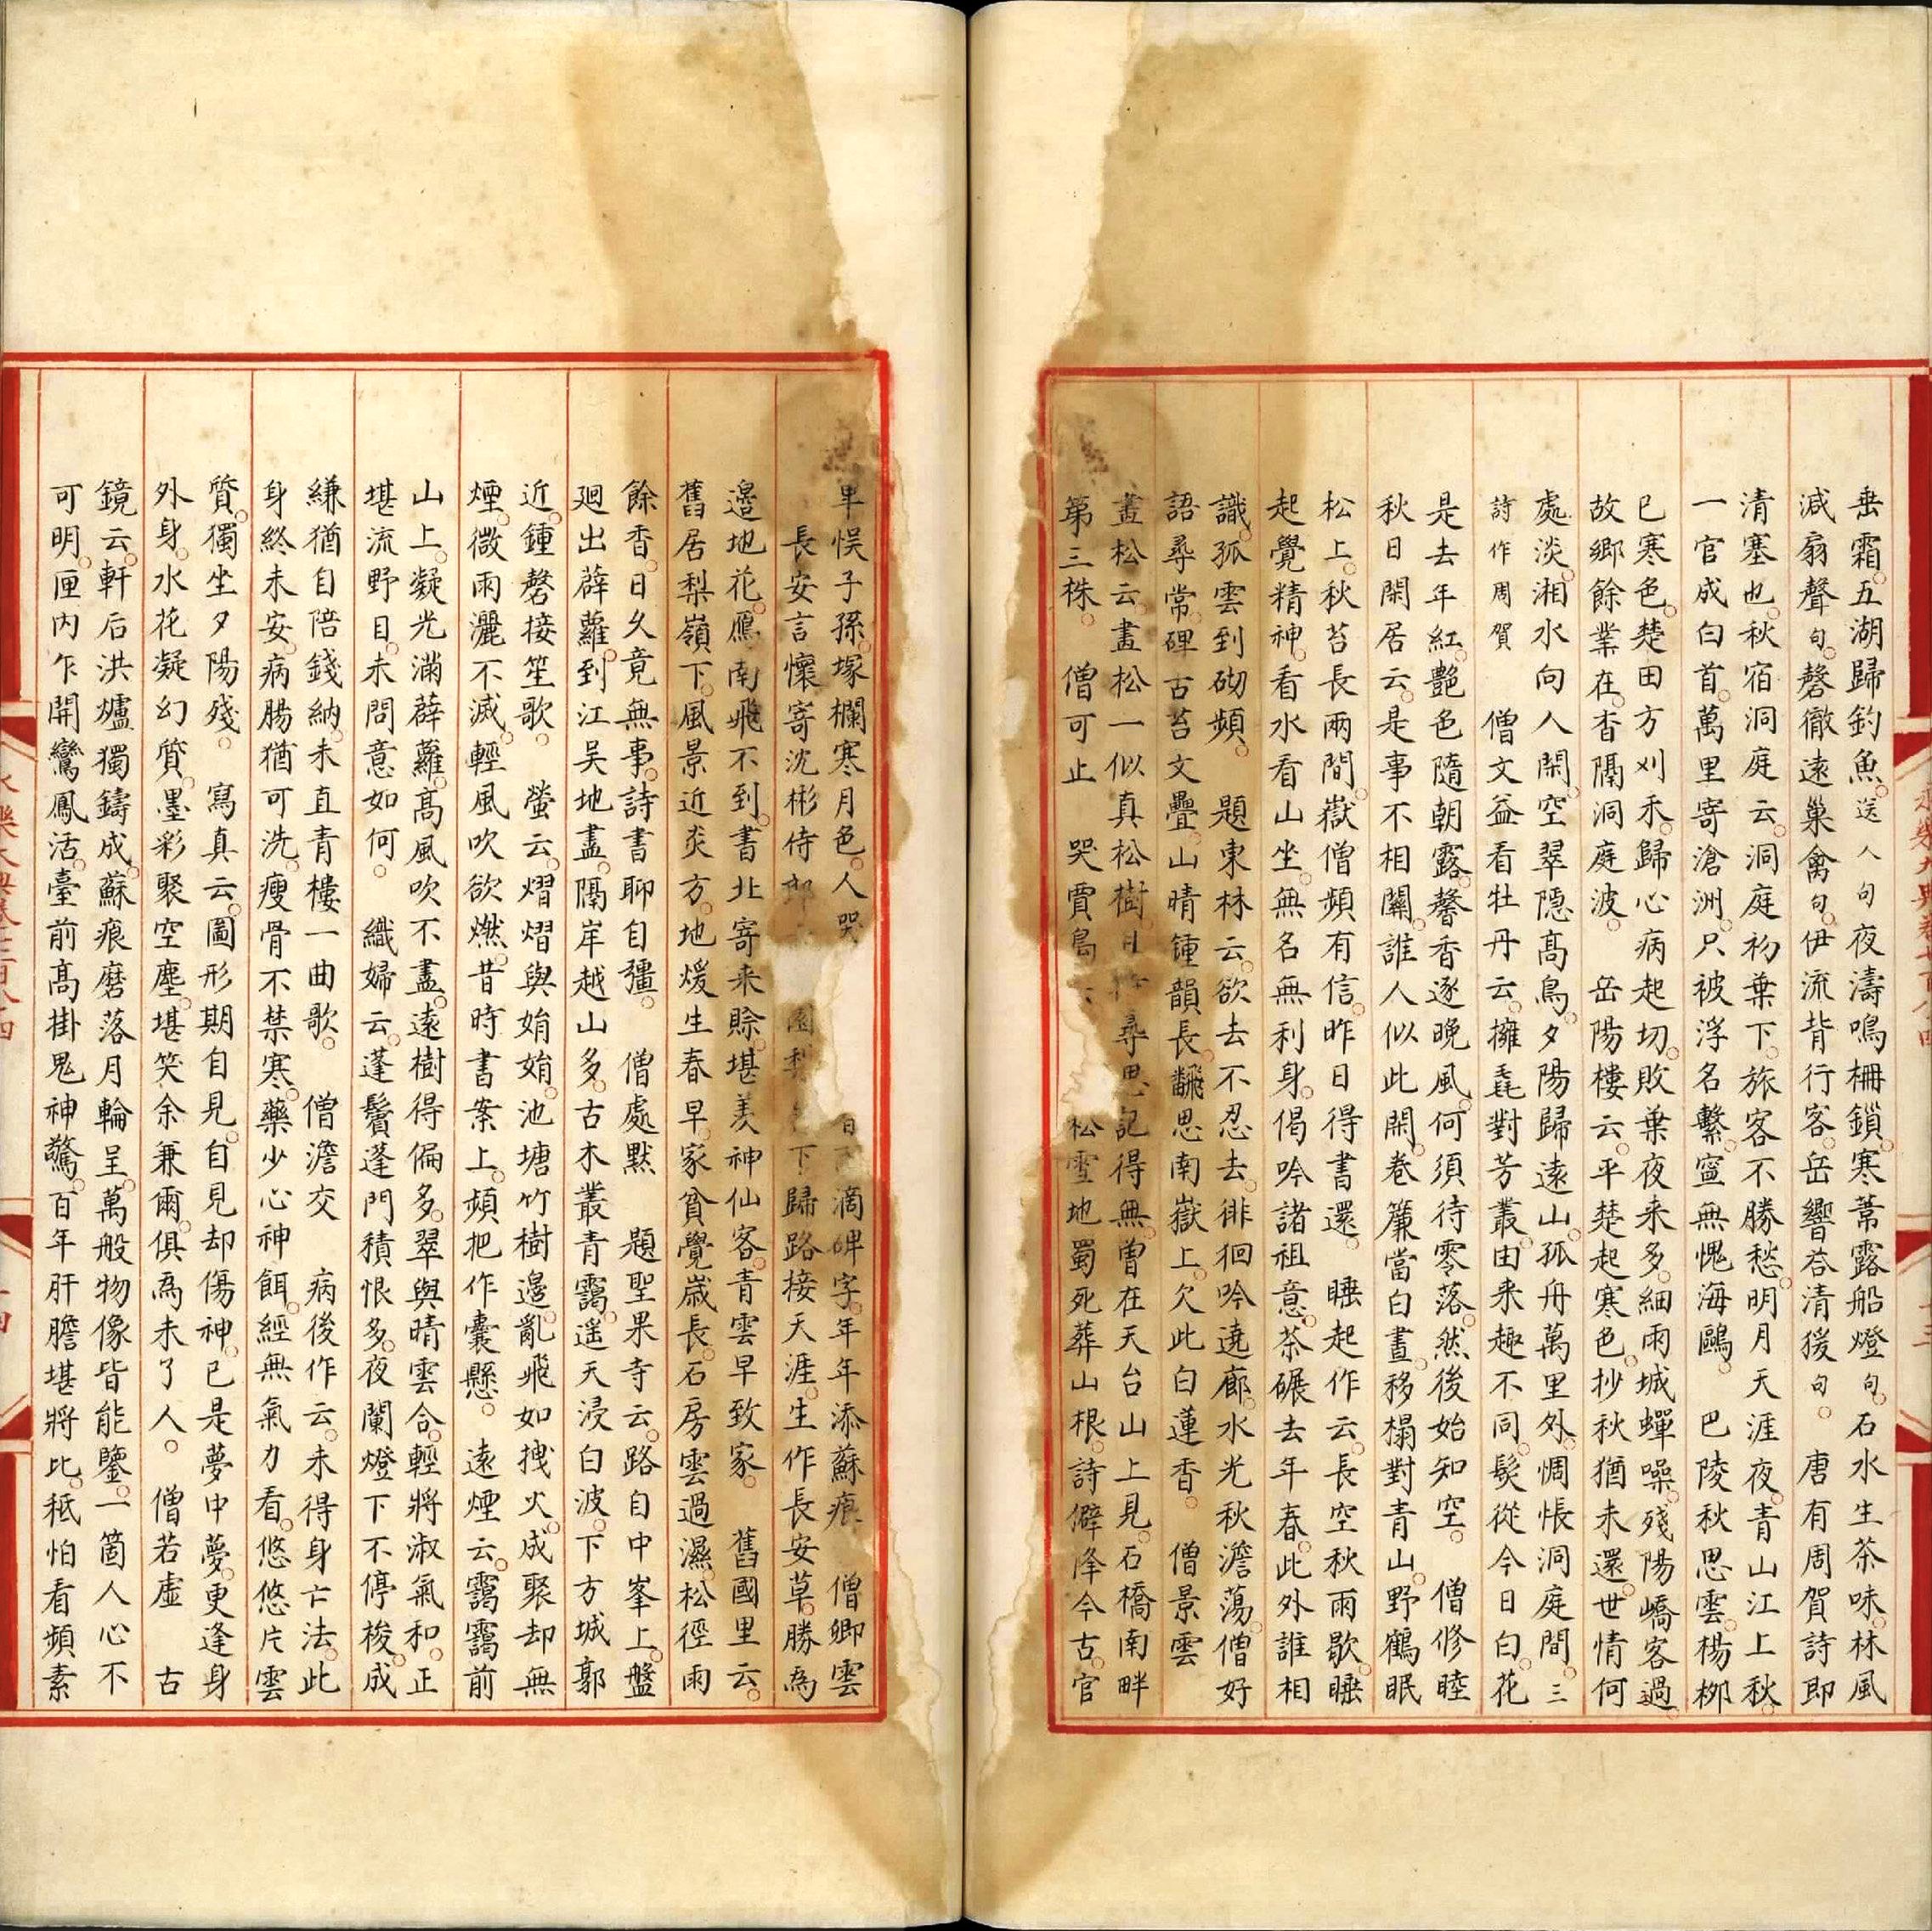 垂霜五湖歸釣魚送人句夜濤鳴柵鎖寒葦露船燈句石水生茶味林風
減扇聲句磬徹遠巢禽句伊流背行客岳響荅清猨句唐有周賀詩即
清塞也秋宿洞庭云洞庭初葉下旅客不勝愁明月天涯夜青山江上秋
一官成白首萬里寄滄洲只被浮名繫寧無愧海鷗巴陵秋思雲楊柳
已寒色楚田方刈禾歸心病起切敗葉夜来多細雨城蟬噪殘陽嶠客過
故鄉餘業在杳隔洞庭波岳陽樓云平楚起寒色抄秋猶未還世情何
處淡湘水向人閑空翠隱髙鳥夕陽歸遠山孤舟萬里外惆悵洞庭間三
詩作周賀僧文益看牡丹云擁毳對芳叢由来趣不同髮從今日白花
是去年紅艶色隨朝露馨香逐晚風何須待零落然後始知空僧修睦
秋日閑居云是事不相關誰人似此閑卷簾當白晝移榻對青山野鶴眠
松上秋苔長雨間嶽僧頻有信昨日得書還睡起作云長空秋雨歇睡
起覺精神看水看山坐無名無利身偈吟諸祖意茶碾去年春此外誰相
識孤雲到砌頻題東林云欲去不忍去徘徊吟遶廊水光秋澹蕩僧好
語尋常碑古苔文疊山晴鍾韻長飜思南嶽上欠此白蓮香僧景雲
畫松云畫松一似真松樹尋思記得無曾在天台山上見石橋南畔
第三株僧可止哭賈島松雪地蜀死葬山根詩僻降今古官
卑悞子孫塚欄寒月色人哭滴碑字年年添蘇痕僧卿雲
長安言懷寄沈彬侍郎園梨下歸路接天涯生作長安草勝為
邉地花鴈南飛不到書北寄来賒堪羡神仙客青雲早致家舊國里云
舊居梨嶺下風景近炎方地煖生春早家貧覺歲長石房雲過濕松徑雨
餘香日久竟無事詩書聊自彊僧處黙題聖果寺云路自中峯上盤
廻出薜蘿到江吴地盡隔岸越山多古木叢青靄遥天浸白波下方城郭
近鍾磬接笙歌螢云熠熠與娟娟池塘竹樹邉亂飛如拽火成聚却無
煙微雨灑不滅輕風吹欲燃昔時書案上頻把作囊懸遠煙云靄靄前
山上凝光滿薜蘿髙風吹不盡遠樹得偏多翠與晴雲合輕將淑氣和正
堪流野目未問意如何織婦云蓬鬢蓬門積恨多夜闌燈下不停梭成
縑猶自陪錢納未直青樓一曲歌僧澹交病後作云未得身亡法此
身終未安病腸猶可洗瘦骨不禁寒藥少心神餌經無氣力看悠悠片雲
質獨坐夕陽殘寫真云圖形期自見自見却傷神已是夢中夢更逢身
外身水花凝幻質墨彩聚空塵堪笑余兼爾俱為未了人僧若虛古
鏡云軒后洪爐獨鑄成蘇痕磨落月輪呈萬般物像皆能鑒一箇人心不
可明匣内乍開鸞鳳活臺前髙掛鬼神驚百年肝膽堪將比秖怕看頻素